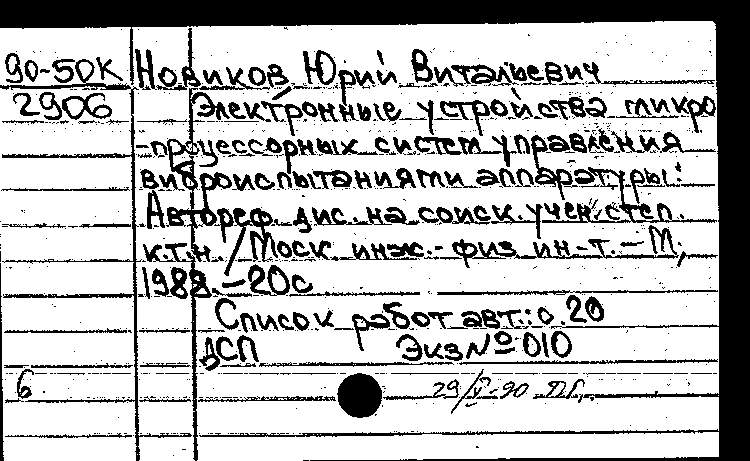 90-50К Новиков Юрий Витальевич
2906 Электронные устройства микро
-процессорных систем управления
виброиспытаниями аппаратуры:
Автореф. дис. на соиск. учен. степ.
к.т.н. / Моск. инж.-физ. ин-т. – М.,
1988. – 20с
Список работ авт.: с. 20
ДСП Экз № 010
6 29/V-90